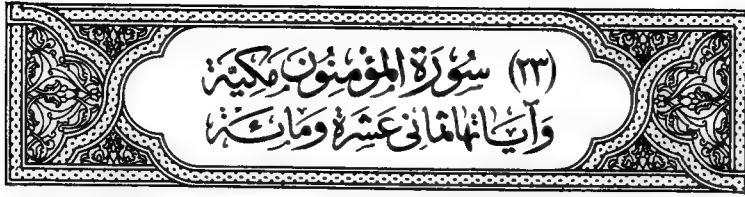 (٢٣) سُورَة المؤمنُون مَكيَّة
وَآيَاتها ثمَاني عَشرة وَمائَة